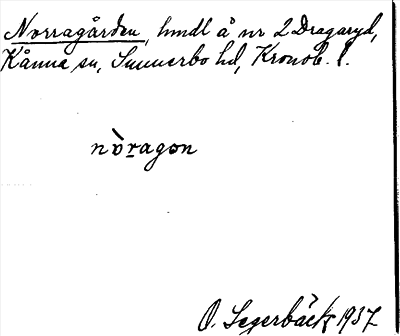 Norragården, hmdl å nr 2 Dragaryd,
Kånna sn, Sunnerbo hd, Kronob. l.
nòragon
O. Segerbäck 1937